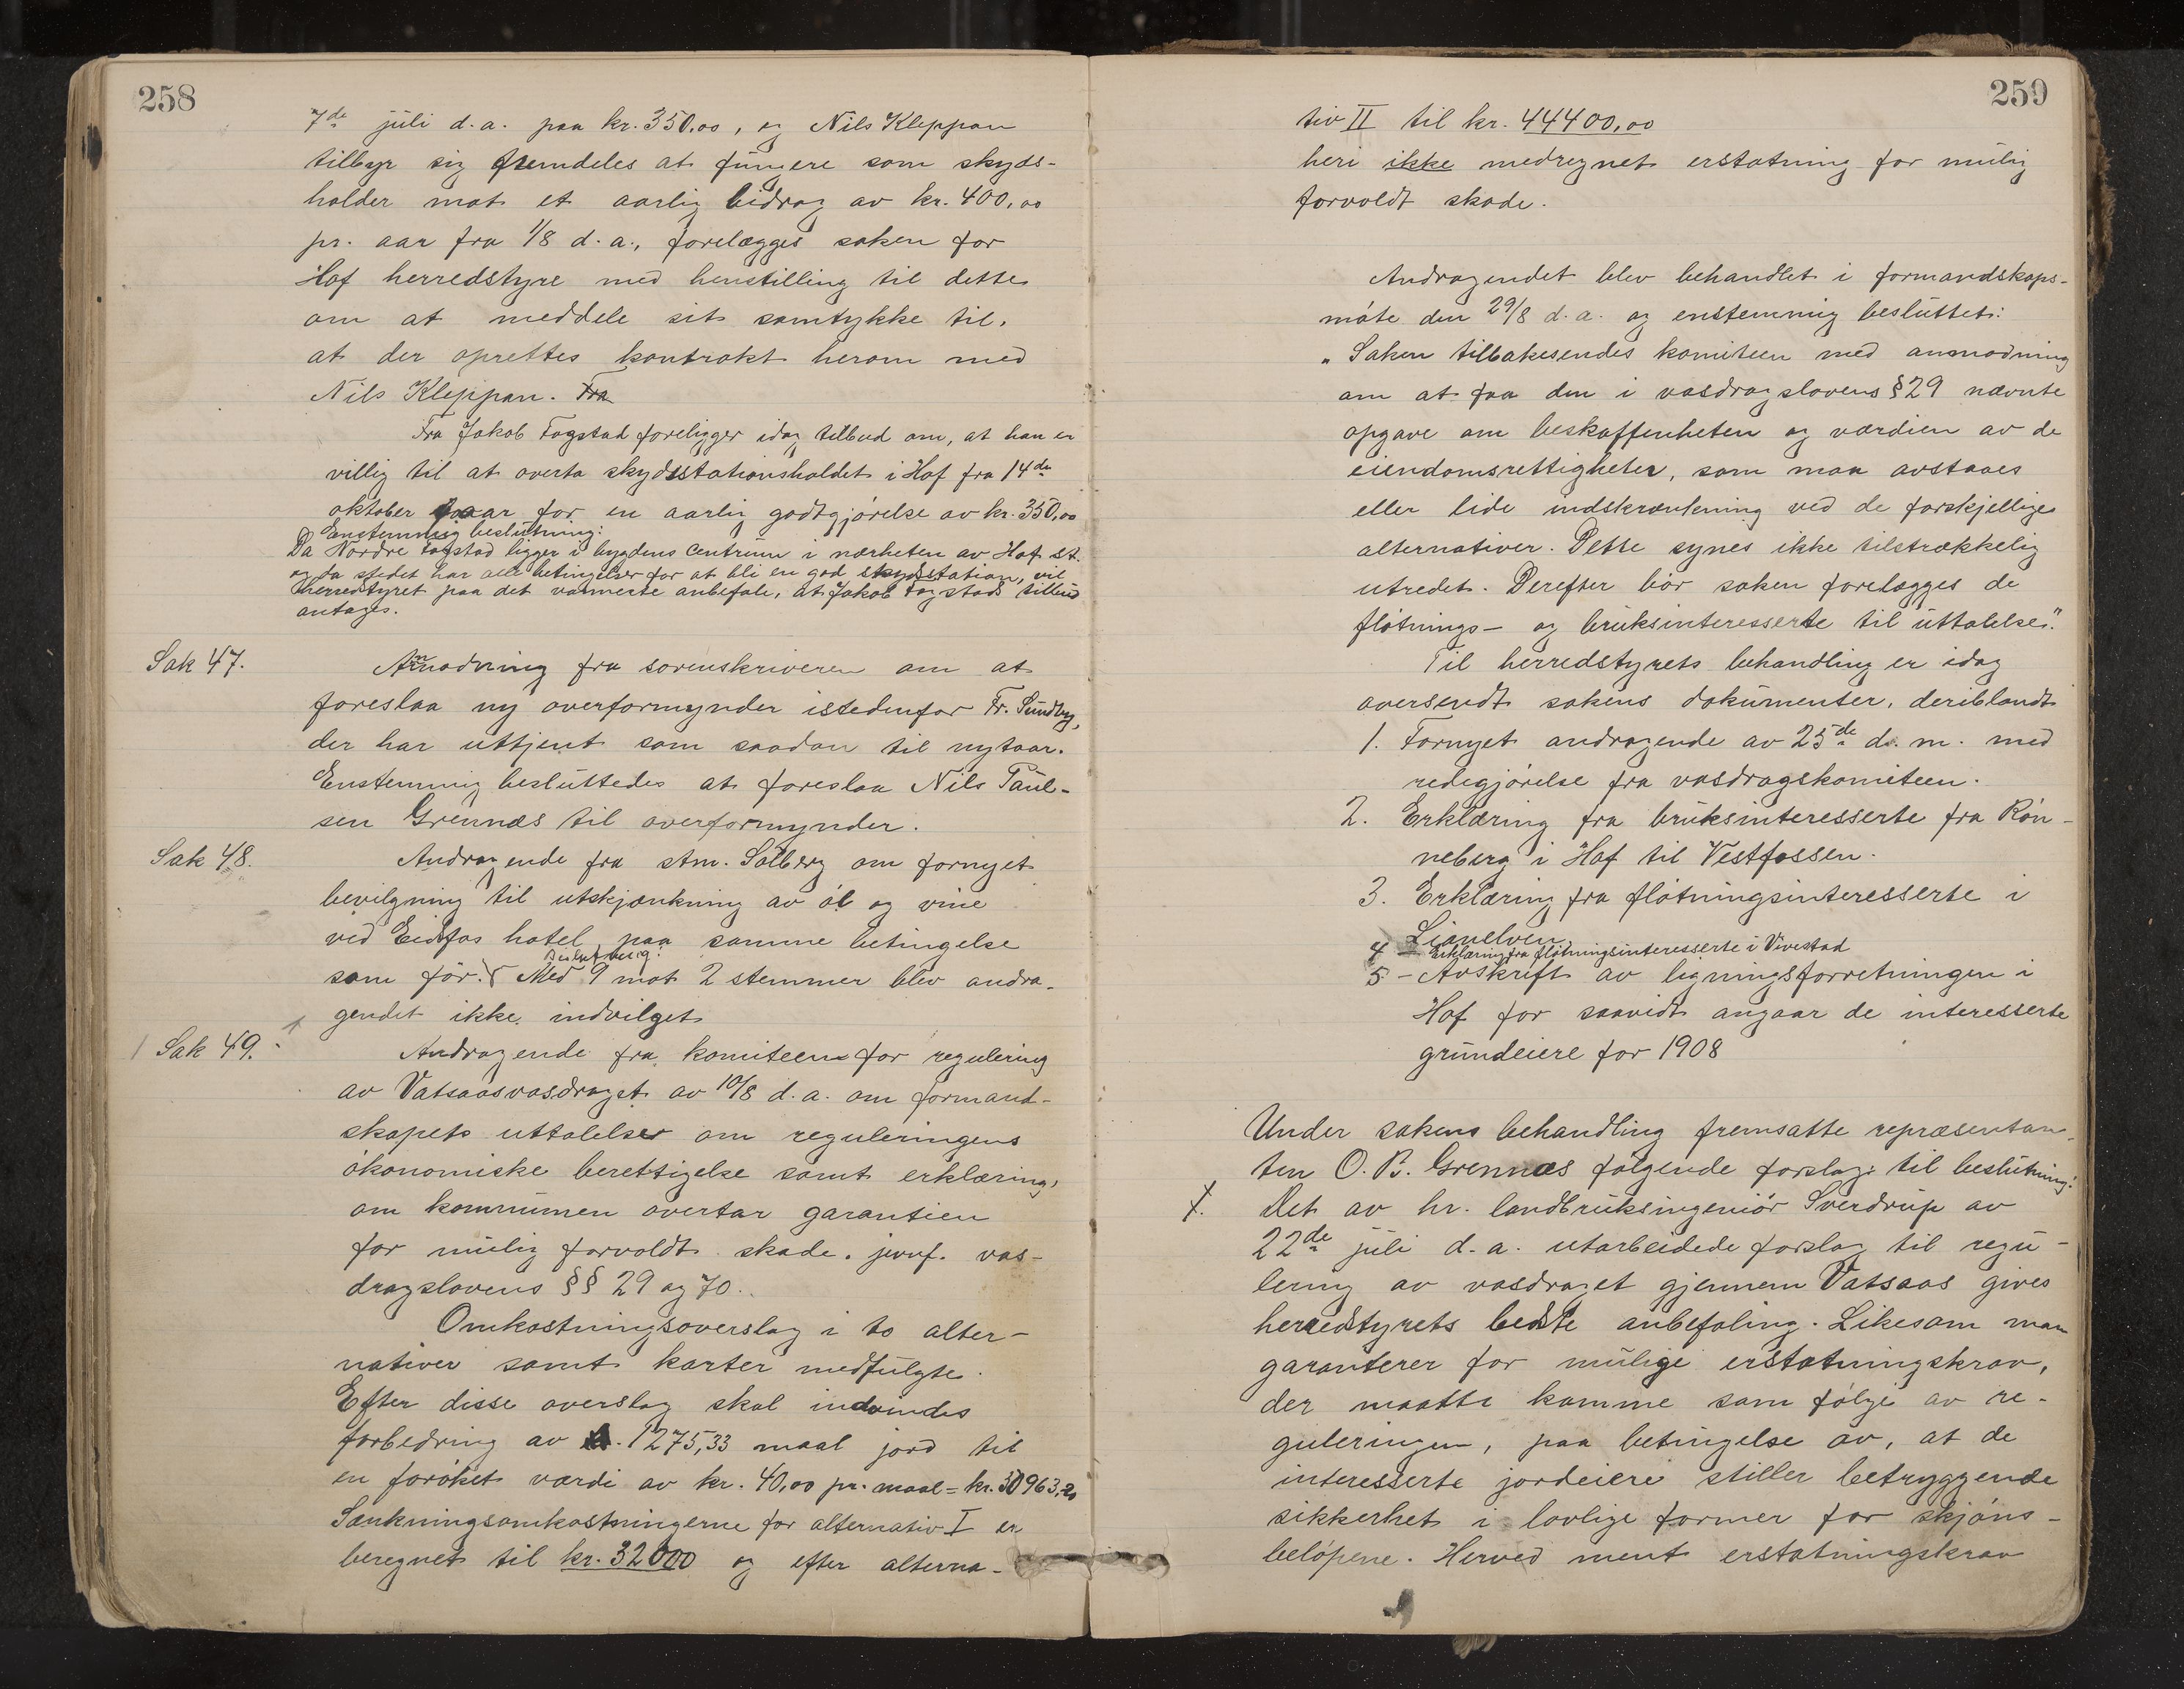 258
7de juli d.a. paa kr. 350,00, og Nils Kleppan
tilbyr sig fremdeles at fungere som skyds-
holder mot et aarlig bidrag av kr. 400,00
pr. aar fra 1/8 d.a., forelægges saken for
Hof herredstyre med henstilling til dette
om at meddele sit samtykke til,
at der oprettes kontrakt herom med
Nils Kleppan. Fra
Fra Jakob Fogstad foreligger idag tilbud om, at han er
villig til at overta skydsstationsholdet i Hof fra 14de
oktober iaar for en aarlig godtgjørelse av kr. 350,00
Enstemmig beslutning:
Da Nordre Fogstad ligger i bygdens centrum i nærheten av Hof st.
og da stedet har alle betingelser for at bli en god skydsstation, vil
herredstyret paa det varmeste anbefale, at Jakob Fogstads tilbud
antages.
Sak 47.
Anmodning fra sorenskriveren om at
foreslaa ny overformynder istedenfor Fr. Sundby,
der har uttjent som saadan til nytaar.
Enstemmig besluttedes at foreslaa Nils Paul-
sen Grennæs til overformynder.
Sak 48.
Andragende fra Am. Solberg om fornyet
bevilgning til utskjænkning av øl og vine
ved Eidsfos hotel paa samme betingelse
som før. Beslutning: Med 9 mot 2 stemmer blev andra-
gendet ikke indvilget
Sak 49.
Andragende fra komiteen for regulering
av Vatsaasvasdraget av 10/8 d.a. om formand-
skapets uttalelser om reguleringens
økonomiske berettigelse samt erklæring,
om kommunen overtar garantien
for mulig forvoldt skade, jevnf. vas-
dragslovens §§ 29 og 70.
Omkostningsoverslag i to alter-
nativer samt karter medfulgte.
Efter disse overslag skal indvindes
forbedring av 1275,33 maal jord til
en forøket værdi av kr. 40,00 pr. maal = kr. 30963,20
Sænkningsomkostningerne for alternativ I er
beregnet til kr. 32000 og efter alterna-
259
tiv II til kr. 44400,00
heri ikke medregnet erstatning for mulig
forvoldt skade.
Andragendet blev behandlet i formandskaps-
møte den 29/8 d.a. og enstemmig besluttet:
"Saken tilbakesendes komiteen med anmodning
om at faa den i vasdragslovens § 29 nævnte
opgave om beskaffenheten og værdien av de
eiendomsrettigheter, som maa avstaaes
eller lide indskrænkning ved de forskjellige
alternativer. Dette synes ikke tilstrækkelig
utredet. Derefter bør saken forelægges de
fløtnings- og bruksinteresserte til uttalelse."
Til herredstyrets behandling er idag
oversendt sakens dokumenter, deriblandt
1. Fornyet andragende av 25de d.m. med
redegjørelse fra vasdragskomiteen.
2. Erklæring fra bruksinteresserte fra Røn-
neberg i Hof til Vestfossen.
3. Erklæring fra fløtningsinteresserte i
Lianelven
4 - Erklæring fra fløtningsinteresserte i Vivestad
5 - Avskrift av ligningsforretningen i
Hof for saavidt angaar de interesserte
grundeiere for 1908
Under sakens behandling fremsatte repræsentan-
ten O.B. Grennæs følgende forslag til beslutning:
1. Det av hr. landbruksingeniør Sverdrup av
22de juli d.a. utarbeidede forslag til regu-
lering av vasdraget gjennem Vatsaas gives
herredstyrets bedste anbefaling. Likesom man
garanterer for mulige erstatningskrav,
der maatte komme som følge av re-
guleringen, paa betingelse av, at de
interesserte jordeiere stiller betryggende
sikkerhet i lovlige former for skjøns-
beløpene. Herved ment erstatningskrav